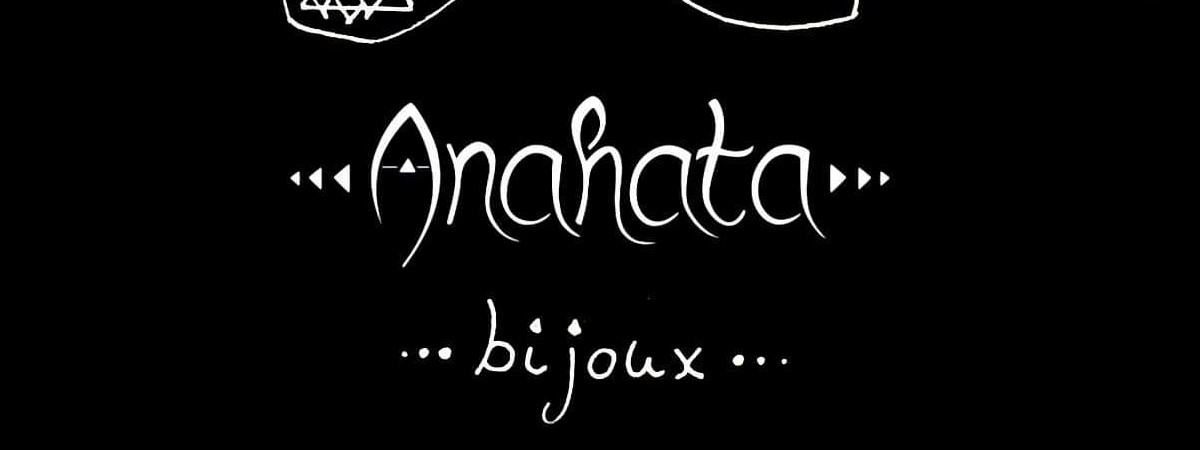 Anahata
bijoux